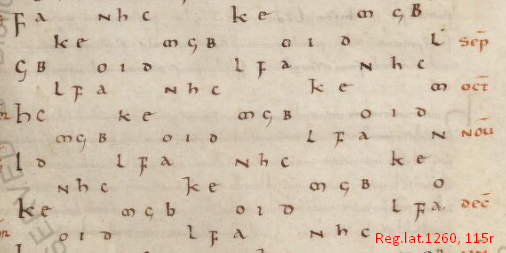 F a n h c k e m G B
k e m G B o i d L Sep̄
G B o i d l F a n h c
l F a n h c k e m oct̄
h c k e m G B o i d
m G B o i d l F a n Noū
l d l F a n h c k e
n h c k e m G B o
k e m G b o i d l F a. dec̄
o i d l F a n h c
Reg.lat.1260, 115r